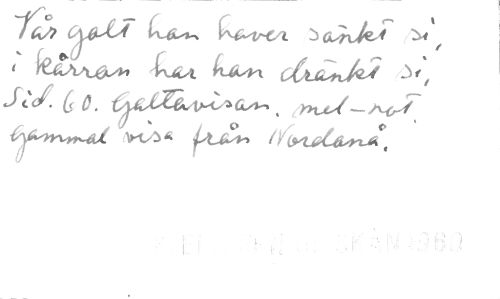 Vår galt han haver sänkt si,
i kårran har han dränkt si,
Sid. 60. Galtavisan. mel-not.
gammal visa från Nordanå.